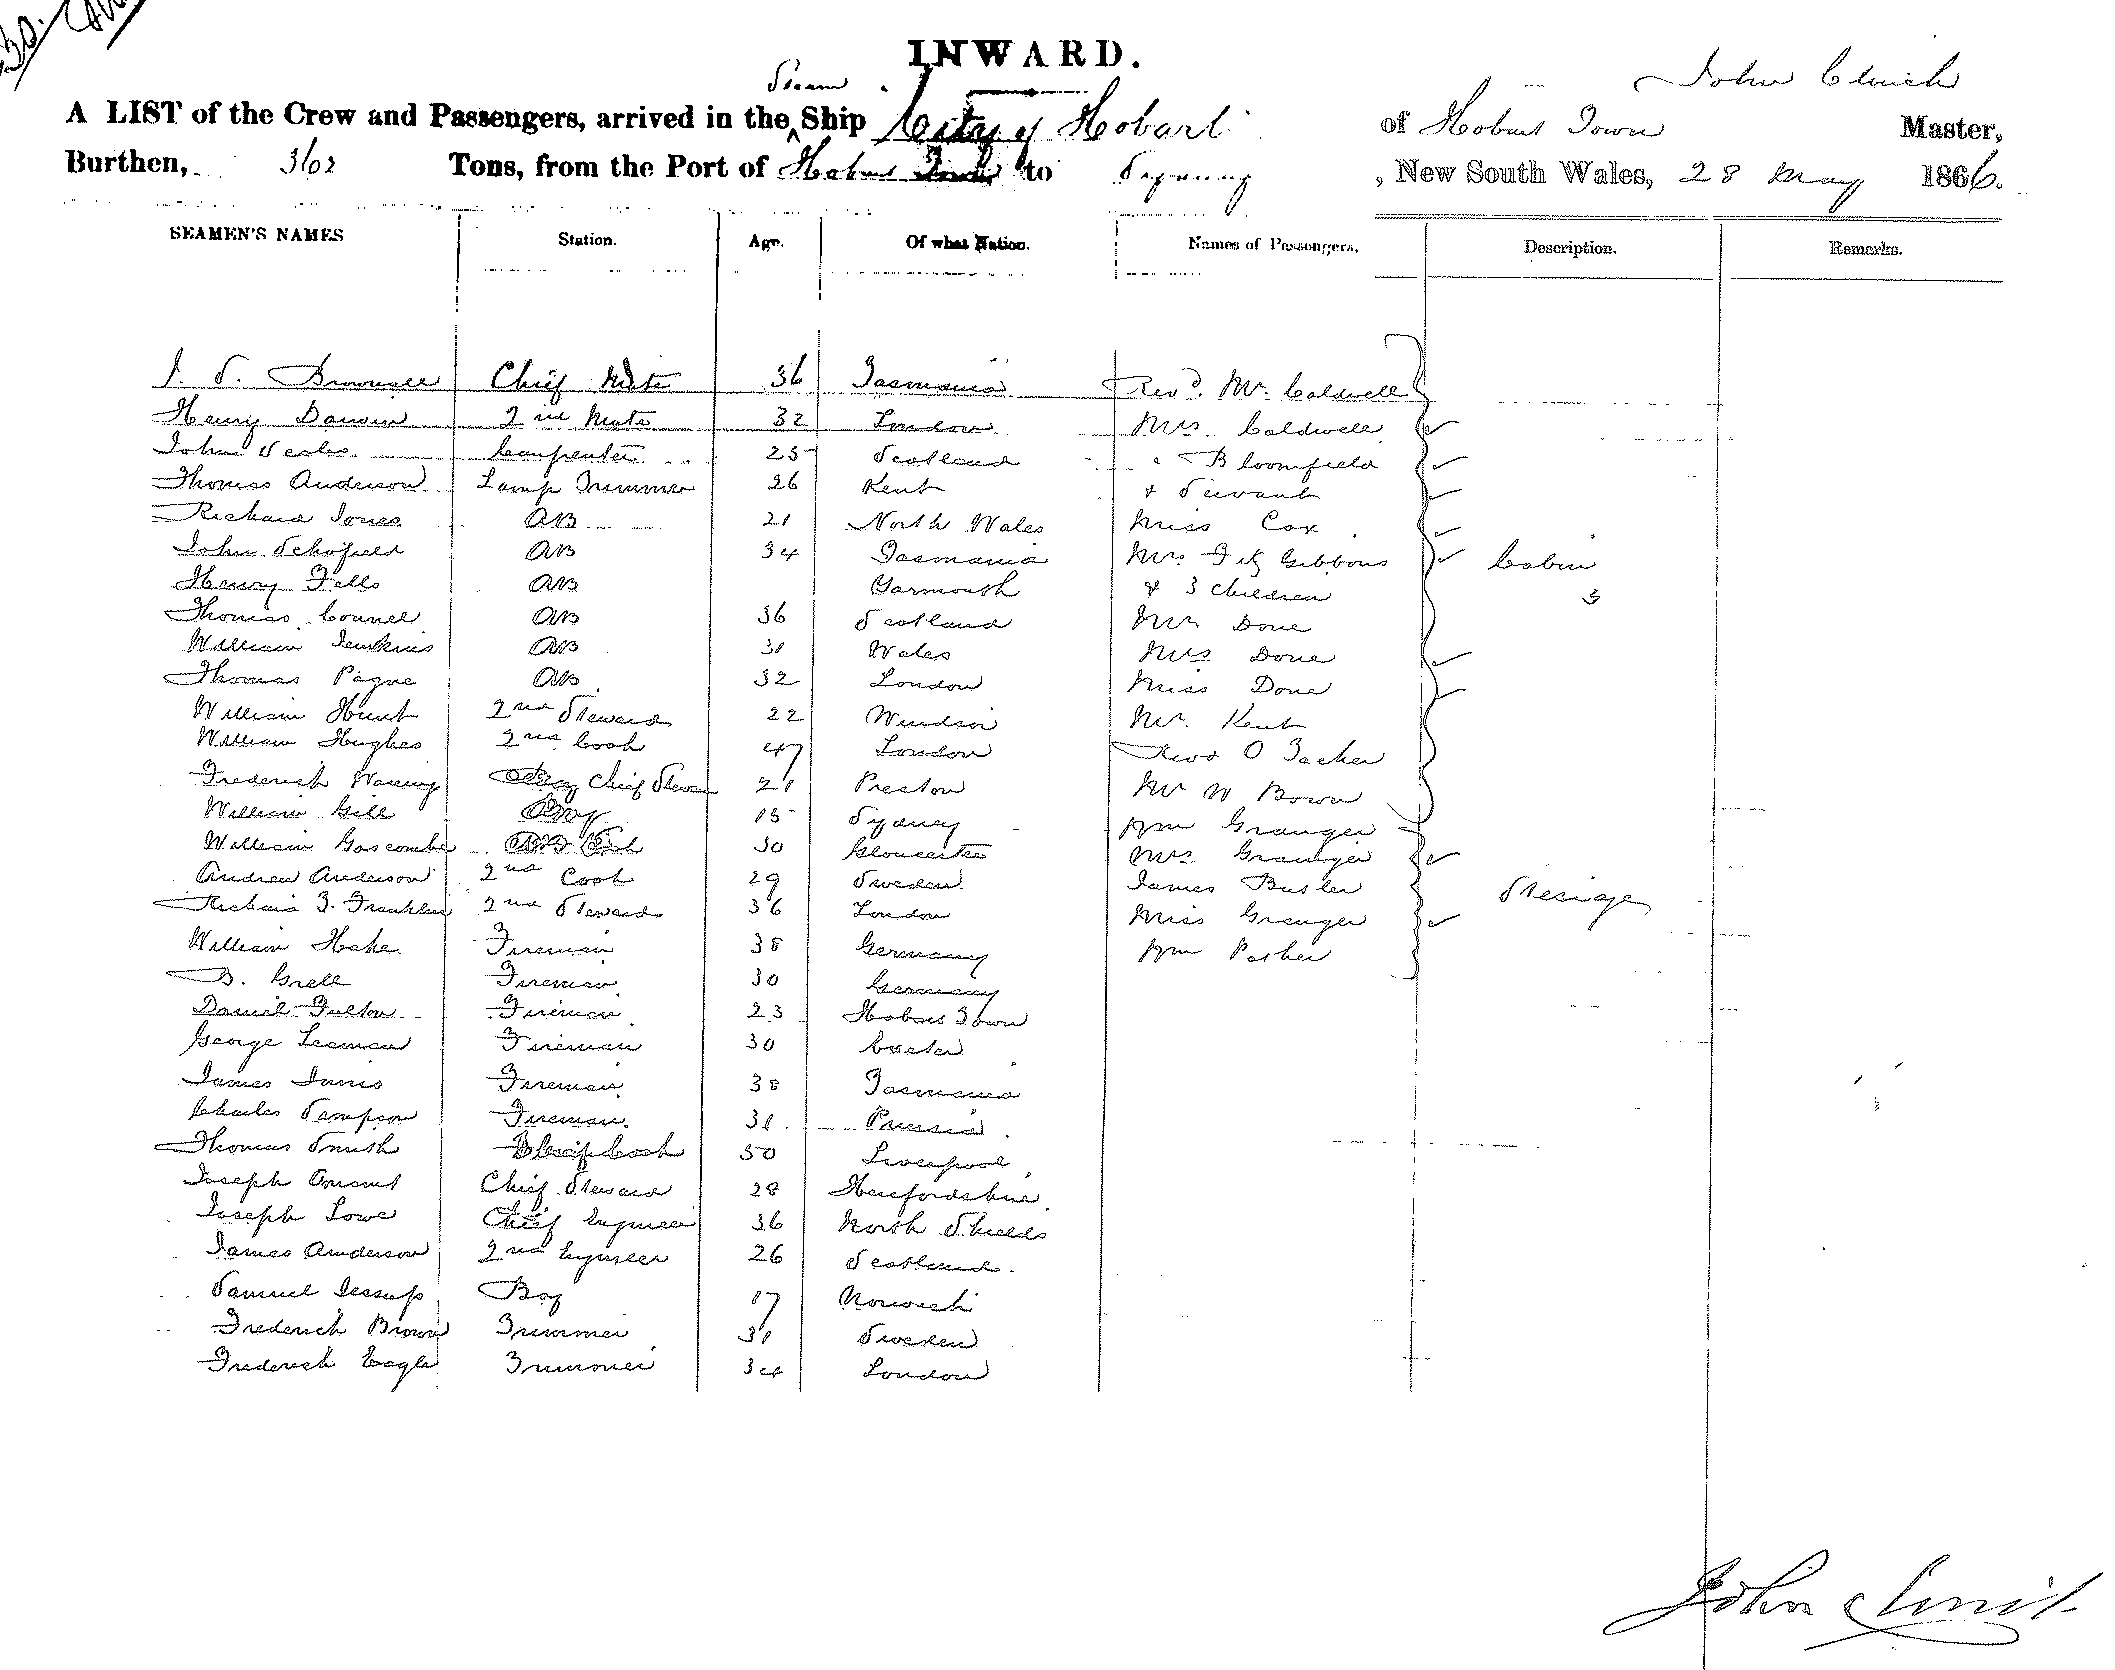 INWARD.
John Clinch
A LIST of the Crew and Passengers, arrived in the Steam Ship City of Hobart of Hobart Town Master,
Burthen, 362 Tons, from the Port of Hobart Town to Sydney, New South Wales, 28 May 1866.
SEAMEN'S NAMES Station. Age. Of what Nation. Names of Passengers. Description. Remarks.
J. S. Chief Mate 36 Tasmania Revd. Mr. Caldwell
Henry Dawson 2nd Mate 32 London Mrs. Caldwell
John Scales Carpenter 25 Scotland " Bloomfield
Thomas Anderson Lamp Trimmer 26 Kent & Servant
Richard Jones AB 21 North Wales Miss Cox
John Schofield AB 34 Tasmania Mrs Fitz Gibbons Cabin
Henry Fells AB Yarmouth & 3 children 3
Thomas Connel AB 36 Scotland Mr Done
William Jenkins AB 31 Wales Mrs Done
Thomas Pigue AB 32 London Miss Done
William Hunt 2nd Steward 22 Windsor Mr. Kent
William Hughes 2nd Cook 47 London Revd O
Frederick Waring Chief Stewar 21 Preston Mr W Bown
William Gill Boy 15 Sydney Wm Granger
William Goscombe 30 Gloucester Mrs Granger
Andrew Anderson 2nd Cook 29 Sweden James Butler Steerage
Richard T. Franklin 2nd Steward 36 London Miss Granger
William Hake Fireman 38 Germany Wm Parker
B. Grell Fireman 30 Germany
Daniel Fulton Fireman 23 Hobart Town
George Leaman Fireman 30 Exeter
James Innis Fireman 38 Tasmania
Charles Sampson Fireman 31 Prussia
Thomas Smith Chief Cook 50 Liverpool
Joseph Chief Steward 28 Herefordshire
Joseph Lowe Chief Engineer 36 North Shields
James Anderson 2nd Engineer 26 Scotland
Samuel Jessups Boy 17 Norwich
Frederick Brown Trimmer 31 Sweden
Frederick Eagle Trimmer 34 London
John Clinch